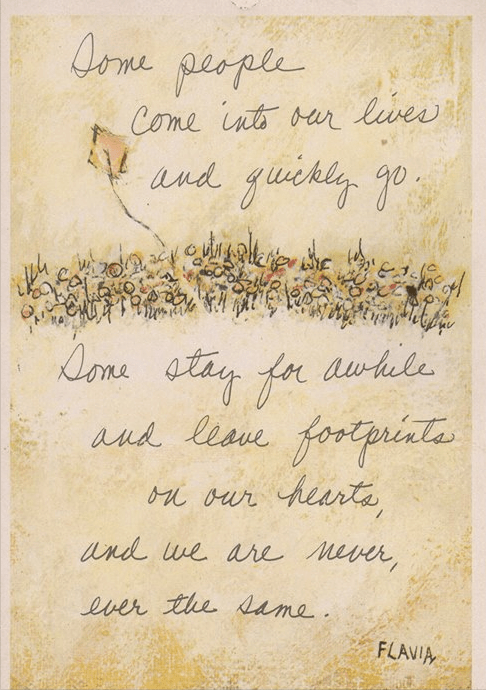 Some people
come into our lives
and quickly go.
Some stay for awhile
and leave footprints
on our hearts,
and we are never,
ever the same.
FLAVIA